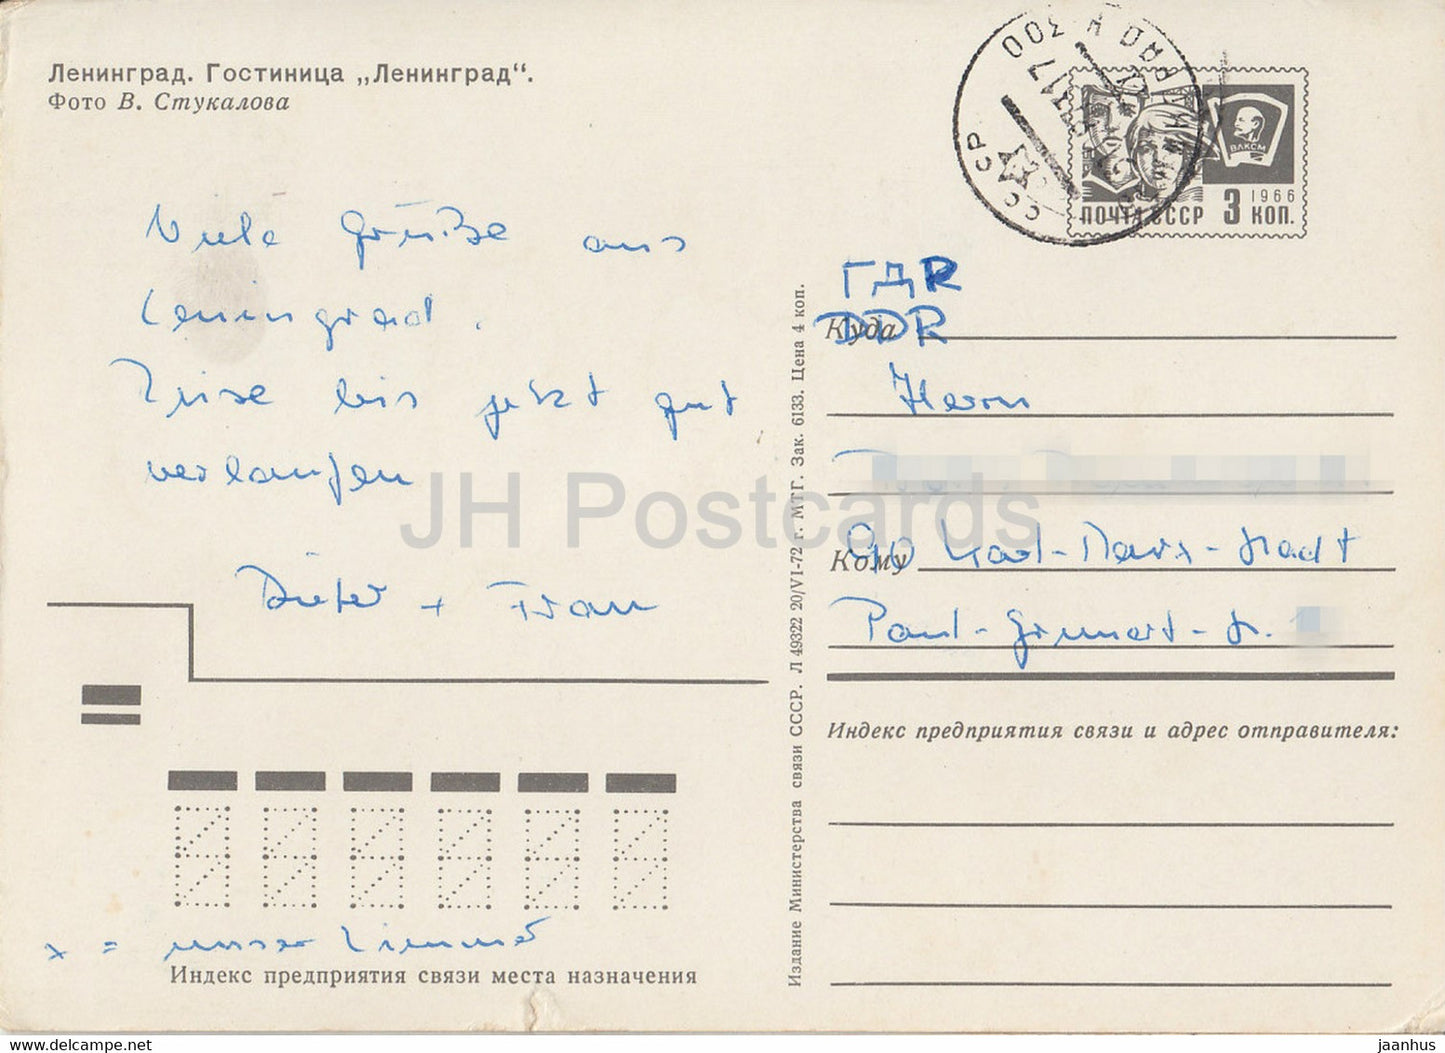 Ленинград. Гостиница „Ленинград“.
Фото В. Стукалова
ВЛКСМ
1966
ПОЧТА СССР 3 КОП.
СССР
Viele Grüße aus
Leningrad.
bis jetzt gut
verlaufen
Dieter + Frau
x = unser Zimmer
ГДR
DDR
Куда
Herrn
Кому
90 Karl-Marx-Stadt
Paul-Gruner-Str.
Индекс предприятия связи и адрес отправителя:
Индекс предприятия связи места назначения
Издание Министерства связи СССР. Л 49322 20/VI-72 г. МТГ. Зак. 6133. Цена 4 коп.
JH Postcards
www.delcampe.net
jaanhus